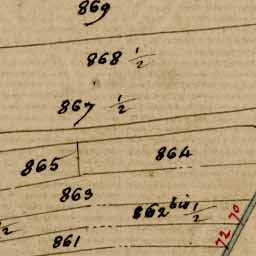 869
868 1/2
867 1/2
865 864
863
862 bis 1/2
1/2
861
72 70